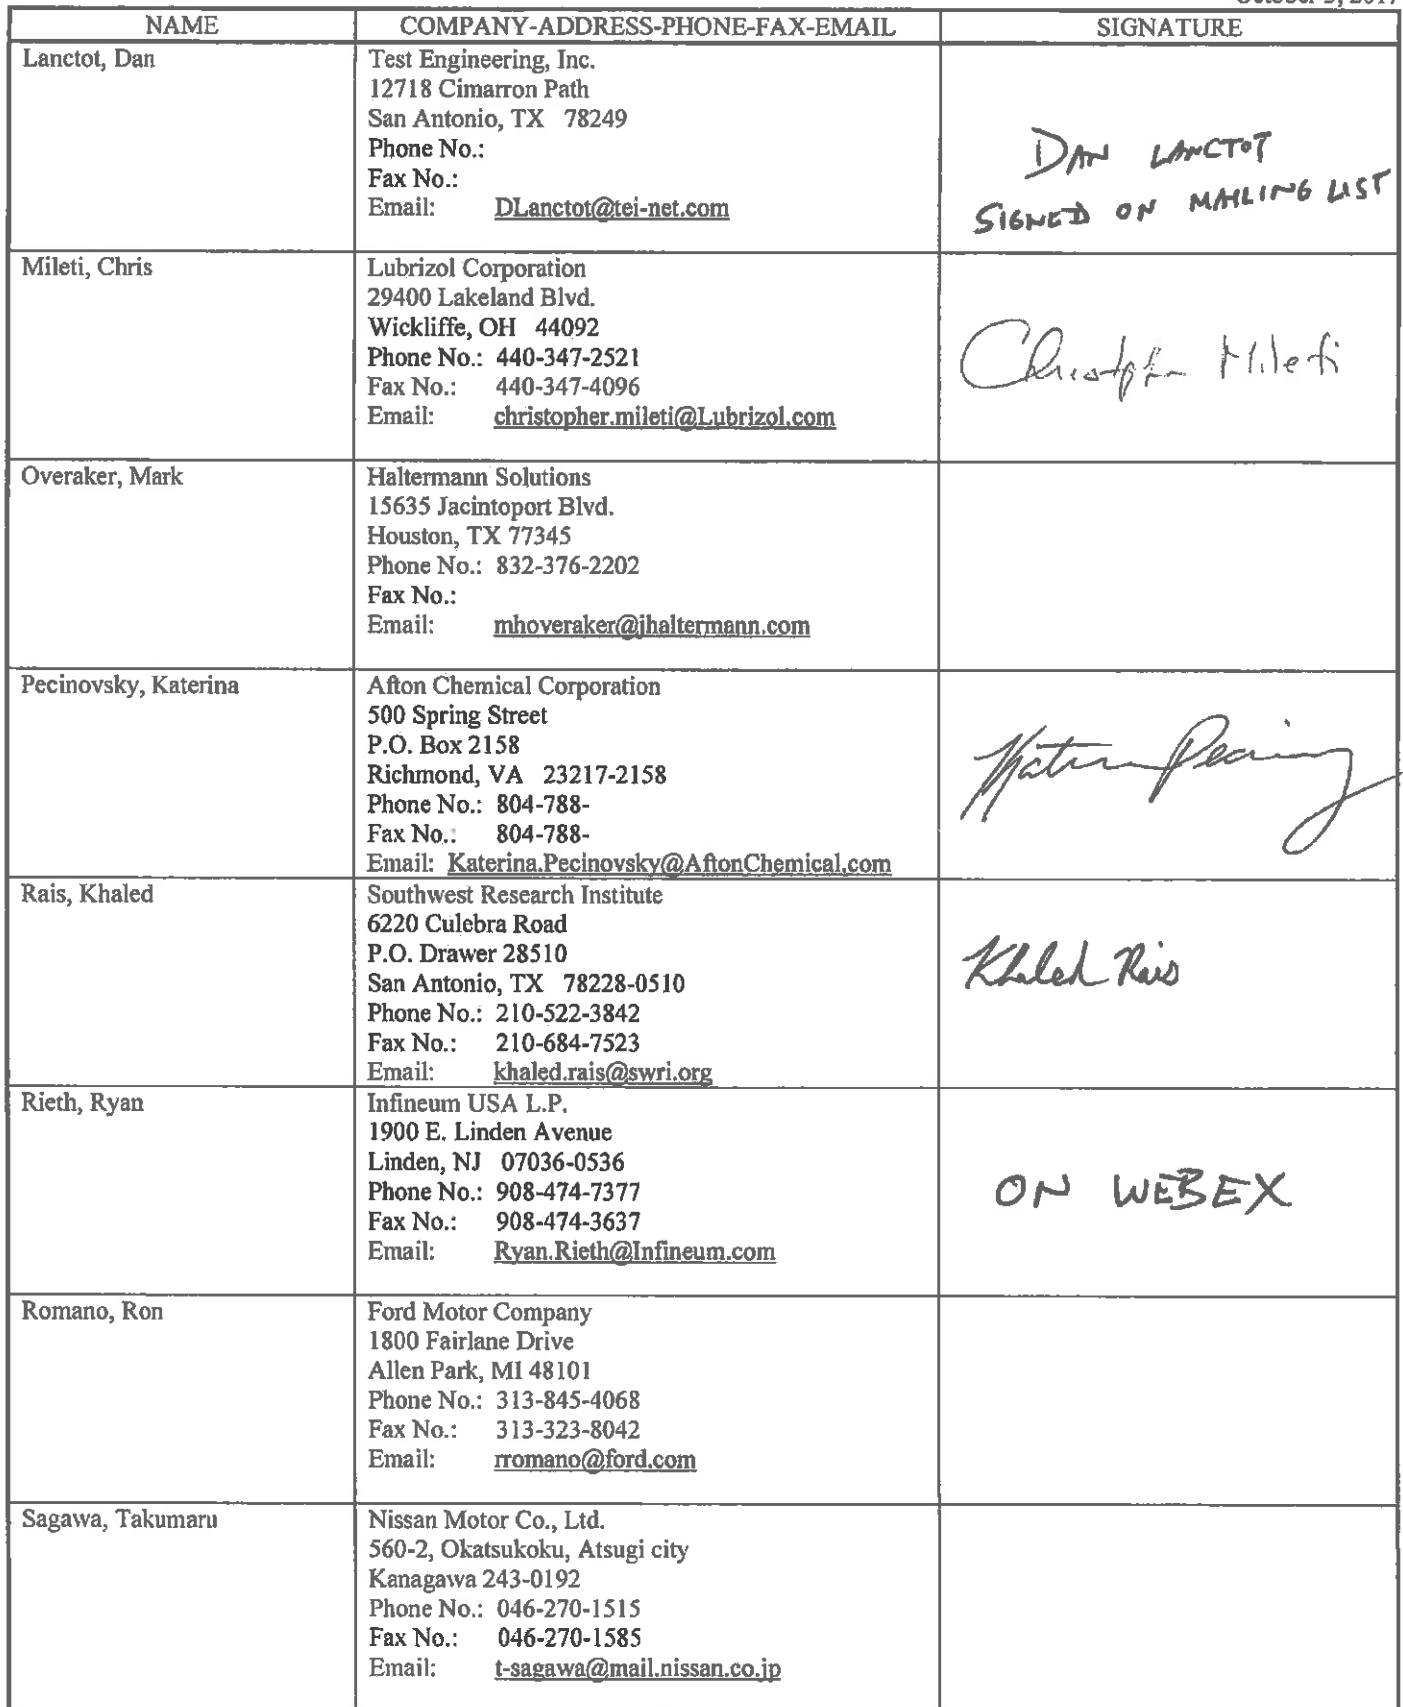 NAME
COMPANY-ADDRESS-PHONE-FAX-EMAIL
SIGNATURE
Lanctot, Dan
Test Engineering, Inc.
12718 Cimarron Path
San Antonio, TX 78249
Phone No.:
Fax No.:
Email: DLanctot@tei-net.com
DAN LANCTOT
SIGNED ON MAILING LIST
Mileti, Chris
Lubrizol Corporation
29400 Lakeland Blvd.
Wickliffe, OH 44092
Phone No.: 440-347-2521
Fax No.: 440-347-4096
Email: christopher.mileti@Lubrizol.com
Christopher Mileti
Overaker, Mark
Haltermann Solutions
15635 Jacintoport Blvd.
Houston, TX 77345
Phone No.: 832-376-2202
Fax No.:
Email: mhoveraker@jhaltermann.com
Pecinovsky, Katerina
Afton Chemical Corporation
500 Spring Street
P.O. Box 2158
Richmond, VA 23217-2158
Phone No.: 804-788-
Fax No.: 804-788-
Email: Katerina.Pecinovsky@AftonChemical.com
Rais, Khaled
Southwest Research Institute
6220 Culebra Road
P.O. Drawer 28510
San Antonio, TX 78228-0510
Phone No.: 210-522-3842
Fax No.: 210-684-7523
Email: khaled.rais@swri.org
Khaled Rais
Rieth, Ryan
Infineum USA L.P.
1900 E. Linden Avenue
Linden, NJ 07036-0536
Phone No.: 908-474-7377
Fax No.: 908-474-3637
Email: Ryan.Rieth@Infineum.com
ON WEBEX
Romano, Ron
Ford Motor Company
1800 Fairlane Drive
Allen Park, MI 48101
Phone No.: 313-845-4068
Fax No.: 313-323-8042
Email: rromano@ford.com
Sagawa, Takumaru
Nissan Motor Co., Ltd.
560-2, Okatsukoku, Atsugi city
Kanagawa 243-0192
Phone No.: 046-270-1515
Fax No.: 046-270-1585
Email: t-sagawa@mail.nissan.co.jp